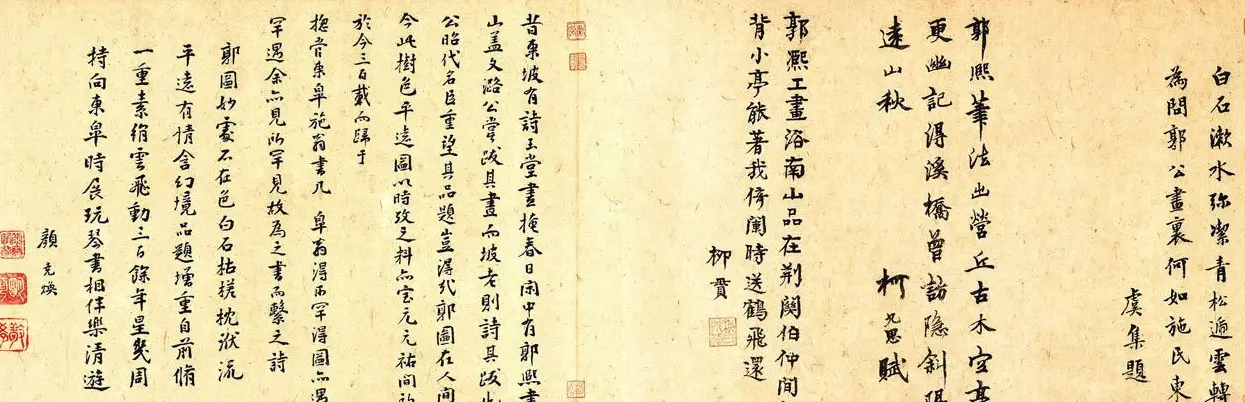 白石漱水弥潔青松遍雲轉
為問郭公畫裏何如施民東
虞集題
郭熙筆法出營丘古木空亭
更幽記得溪橋曾訪隐斜陽
遠山秋 柯九思賦
郭熙工畫洛南山品在荆關伯仲間
背小亭能著我倚闌時送鶴飛還
柳貫
昔東坡有詩玉堂晝掩春日閑中有郭熙畫
山盖文潞公嘗跋其畫而坡老則詩其跋也
公昭代名臣重望其品題豈得哉郭圖在人間
今此樹色平遠圖以時攷之料亦宝元元祐間
於今三百載而歸于
東皐施翁書几 皐翁得所罕得圖亦遇
罕遇余亦見所罕見故為之書而繫之詩
郭圖妙處不在色白石枯槎枕流
平遠有情含幻境品題增重自前脩
一重素絹雲飛動三百餘年星幾周
持向東皐時展玩琴書相伴樂清遊
顔克煥